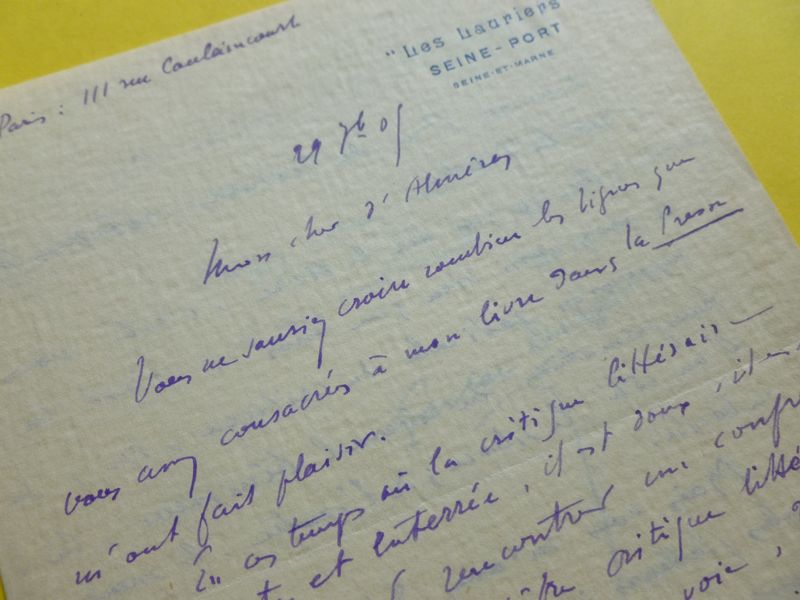 Paris : 111 rue Caulaincourt
"Les Lauriers
SEINE-PORT
SEINE-ET-MARNE
29 7b 05
Mon cher d'Alméras
Vous ne sauriez croire combien les lignes que
vous avez consacrées à mon livre dans la Presse
m'ont fait plaisir.
En ces temps où la critique littérair
et enterrée, il est doux, il e
rencontrer un confr
critique litté
voie,